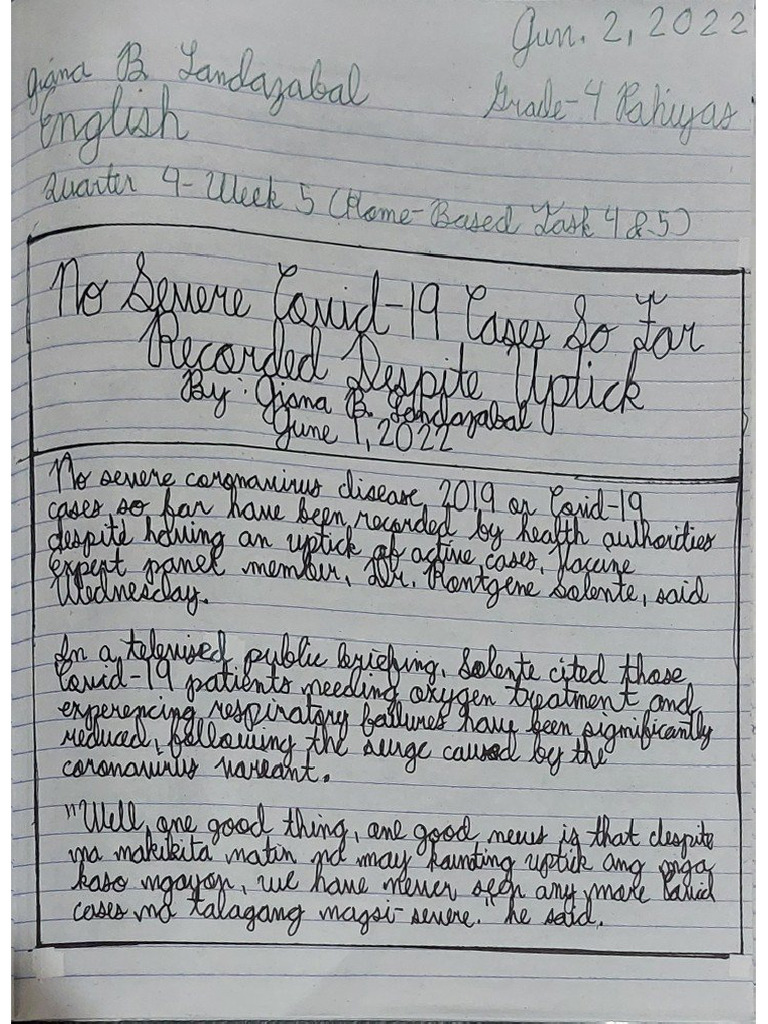 Jun. 2, 2022
Giana B. Landazabal
Grade-4 Pahiyas
English
Quarter 4-Week 5 (Home-Based Task 4 & 5)
No Severe Covid-19 Cases So Far
Recorded Despite Uptick
By: Giana B. Landazabal
June 1, 2022
No severe coronavirus disease 2019 or Covid-19
cases so far have been recorded by health authorities
despite having an uptick of active cases, Vaccine
expert panel member, Dr. Rontgene Solente, said
Wednesday.
In a televised public briefing, Solente cited those
Covid-19 patients needing oxygen treatment and
experencing respiratory failures have been significantly
reduced, following the surge caused by the
coronavirus vareant.
"Well, one good thing, one good news is that despite
na makikita natin na may kaunting uptick ang mga
kaso ngayon, we have never seen any more Covid
cases na talagang magsi-severe." he said.